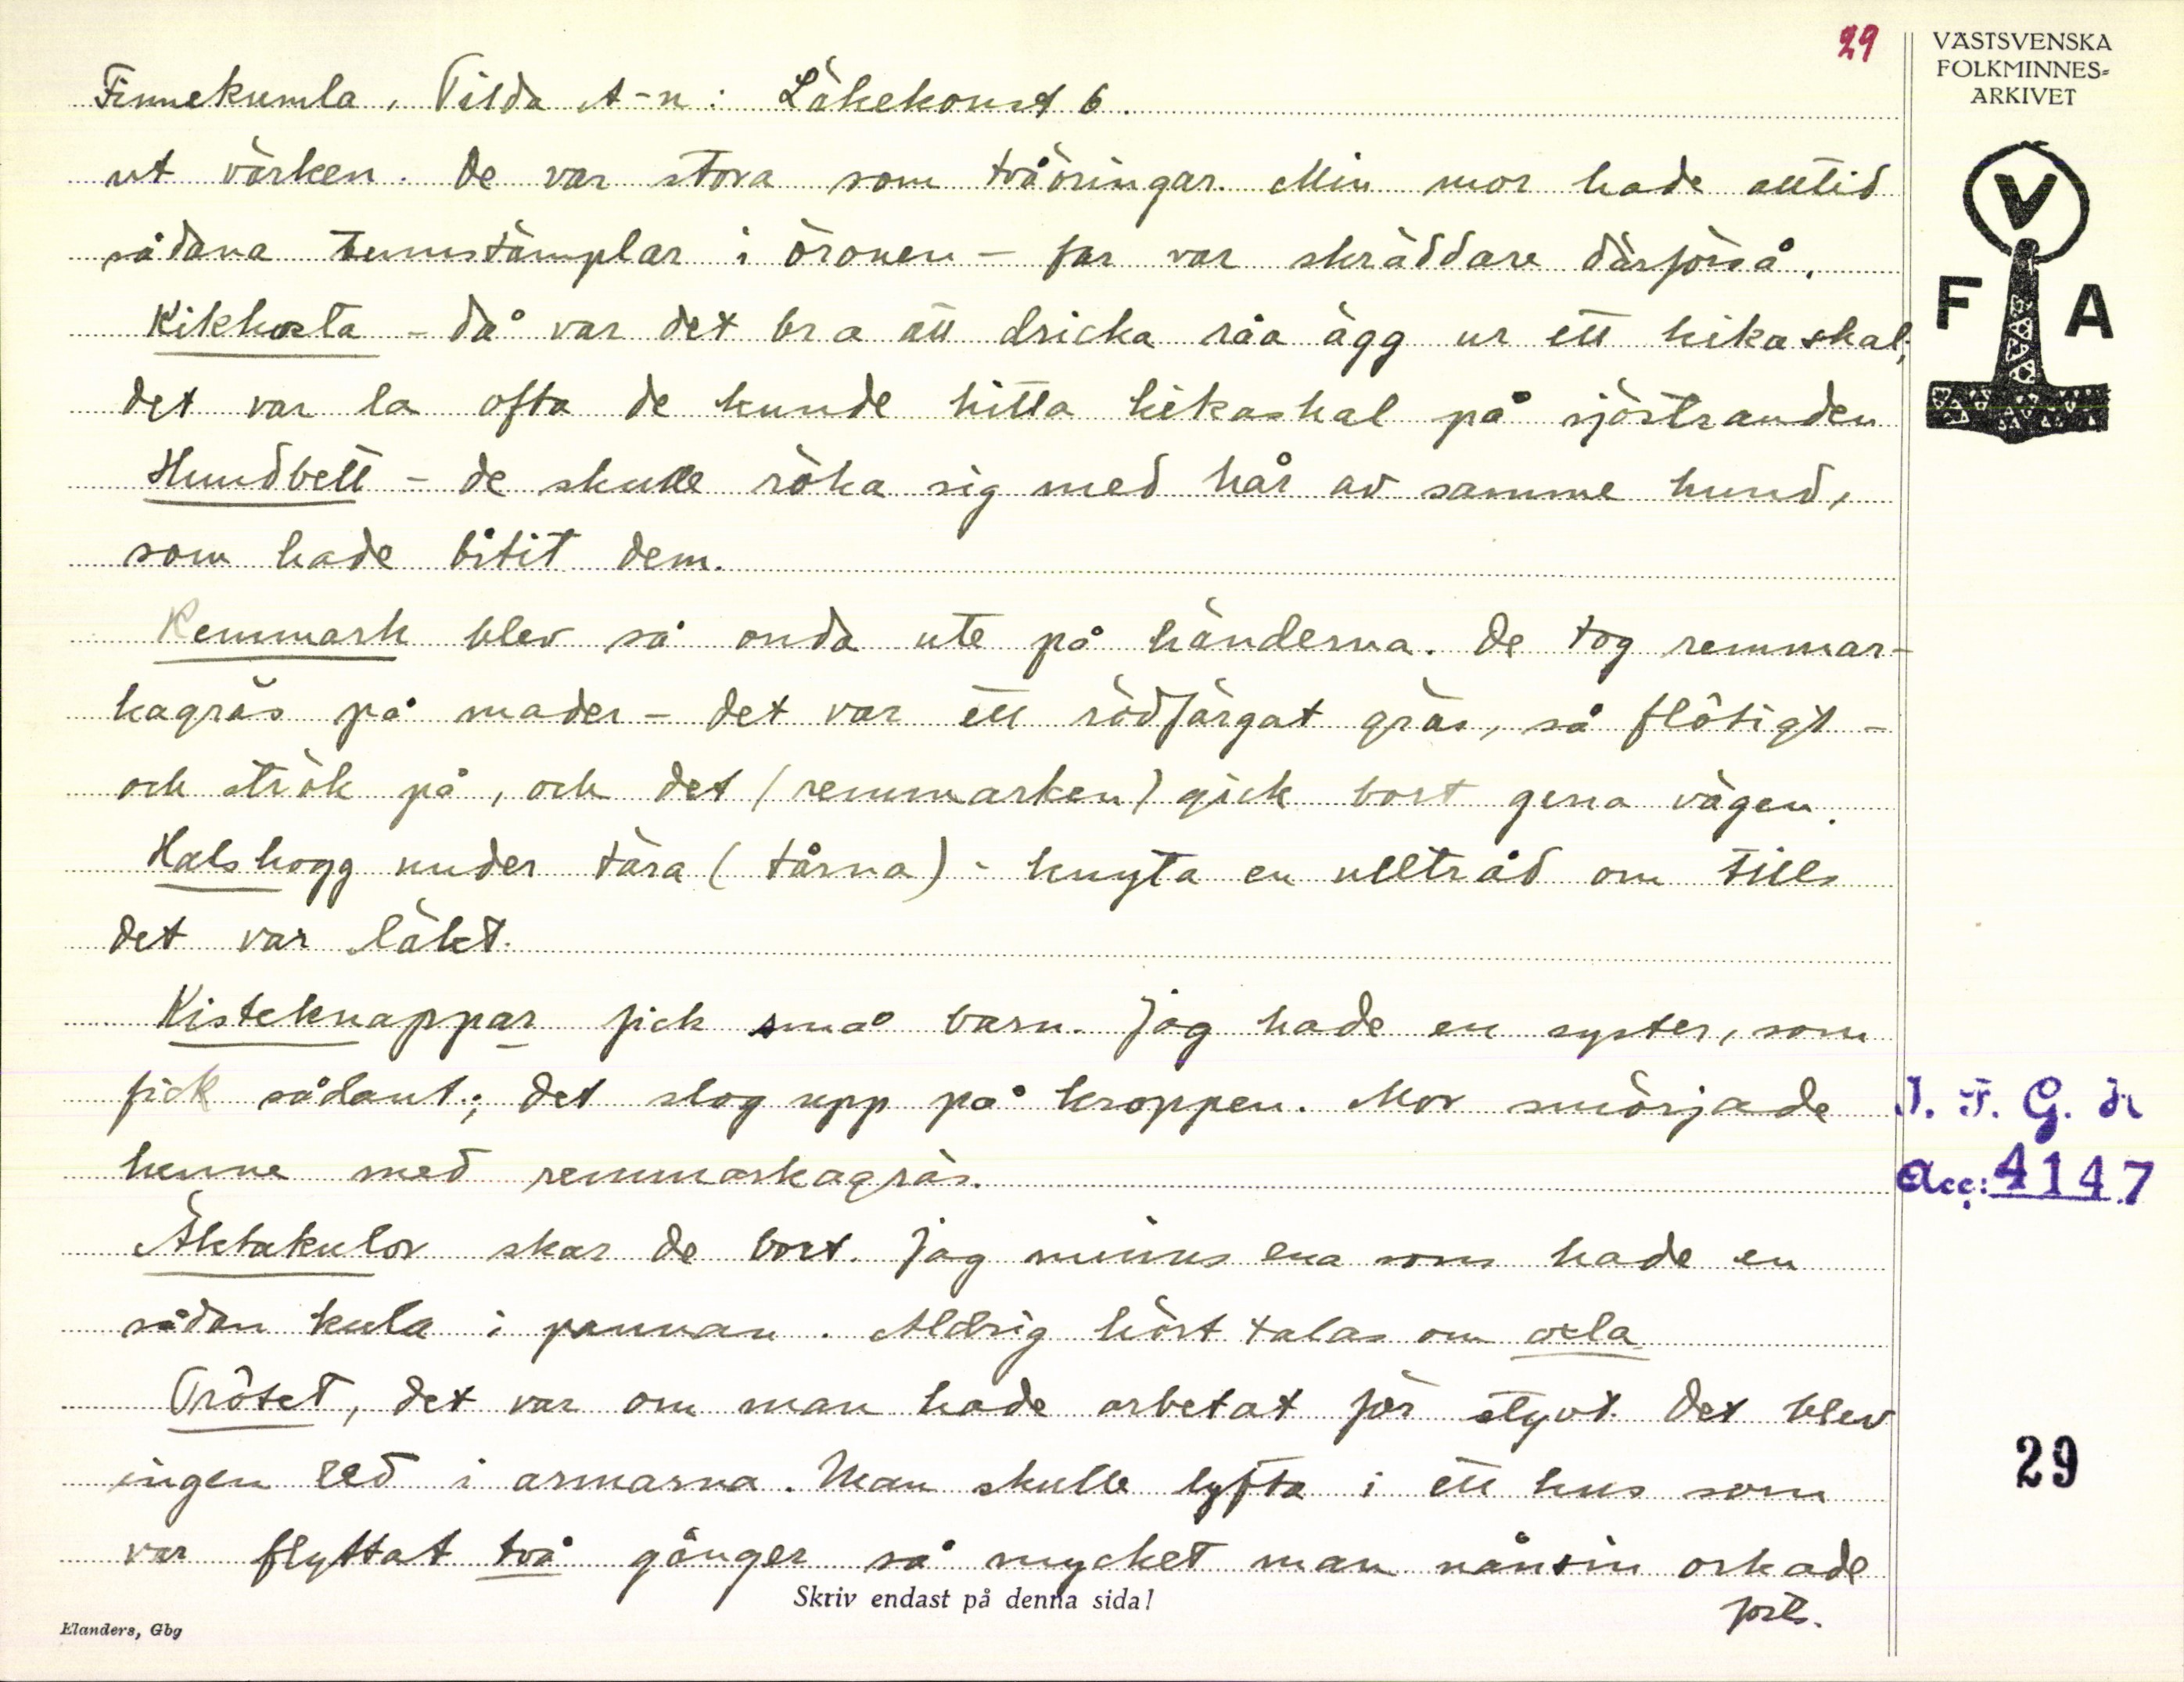 29
VÄSTSVENSKA
FOLKMINNES=
ARKIVET
V
F A
Finnekumla, Tilda A-n: Läkekonst 6.
ut värken. De var stora som tvåöringar. Min mor hade alltid
sådana tennstämplar i öronen - far var skräddare därförså.
Kikhosta - då var det bra att dricka råa ägg ur ett kikaskal;
det var la ofta de kunde hitta kikaskal på sjöstranden
Hundbett - de skulle röka sig med hår av samme hund,
som hade bitit dem.
Remmark blev så onda ute på händerna. De tog remmar-
kagräs på mader - det var ett rödfärgat gräs, så flôtigt -
och strök på, och det (remmarken) gick bort gena vägen.
Halshogg under tåra (tårna) - knyta en ulltråd om tills
det var läkt.
Kisteknappar fick små barn. Jag hade en syster, som
fick sådant; det slog upp på kroppen. Mor smörjade
henne med remmarkagräs.
Äktakulor skar de bort. Jag minns ena som hade en
sådan kula i pannan. Aldrig hört talas om oxla.
Trôset, det var om man hade arbetat för styvt. Det blev
ingen led i armarna. Man skulle lyfta i ett hus som
var flyttat två gånger så mycket man nånsin orkade
forts.
I. F. G. nr
Acc: 4147
29
Skriv endast på denna sida!
Elanders, Gbg